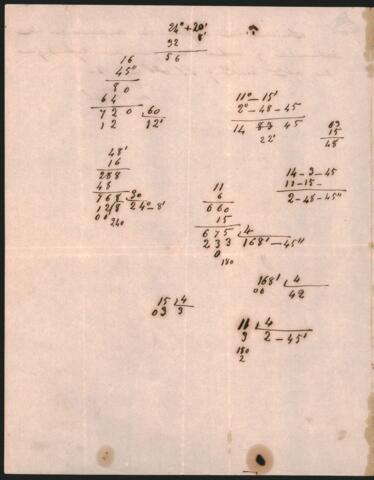 24° + 20'
8'
32
56
16
45"
80
64
720 | 60
12 12'
11° — 15'
2° — 48 — 45
14 63 45
22'
03
15
48
48'
16
288
48
768 | 30
128 24° — 8'
00'
240
11
6
660
15
675 | 4
233 168' — 45"
0
180
14 — 3 — 45
11 — 15 —
2 — 48 — 45"
168' | 4
06 42
15 | 4
03 3
11 | 4
3 2 — 45'
180
2